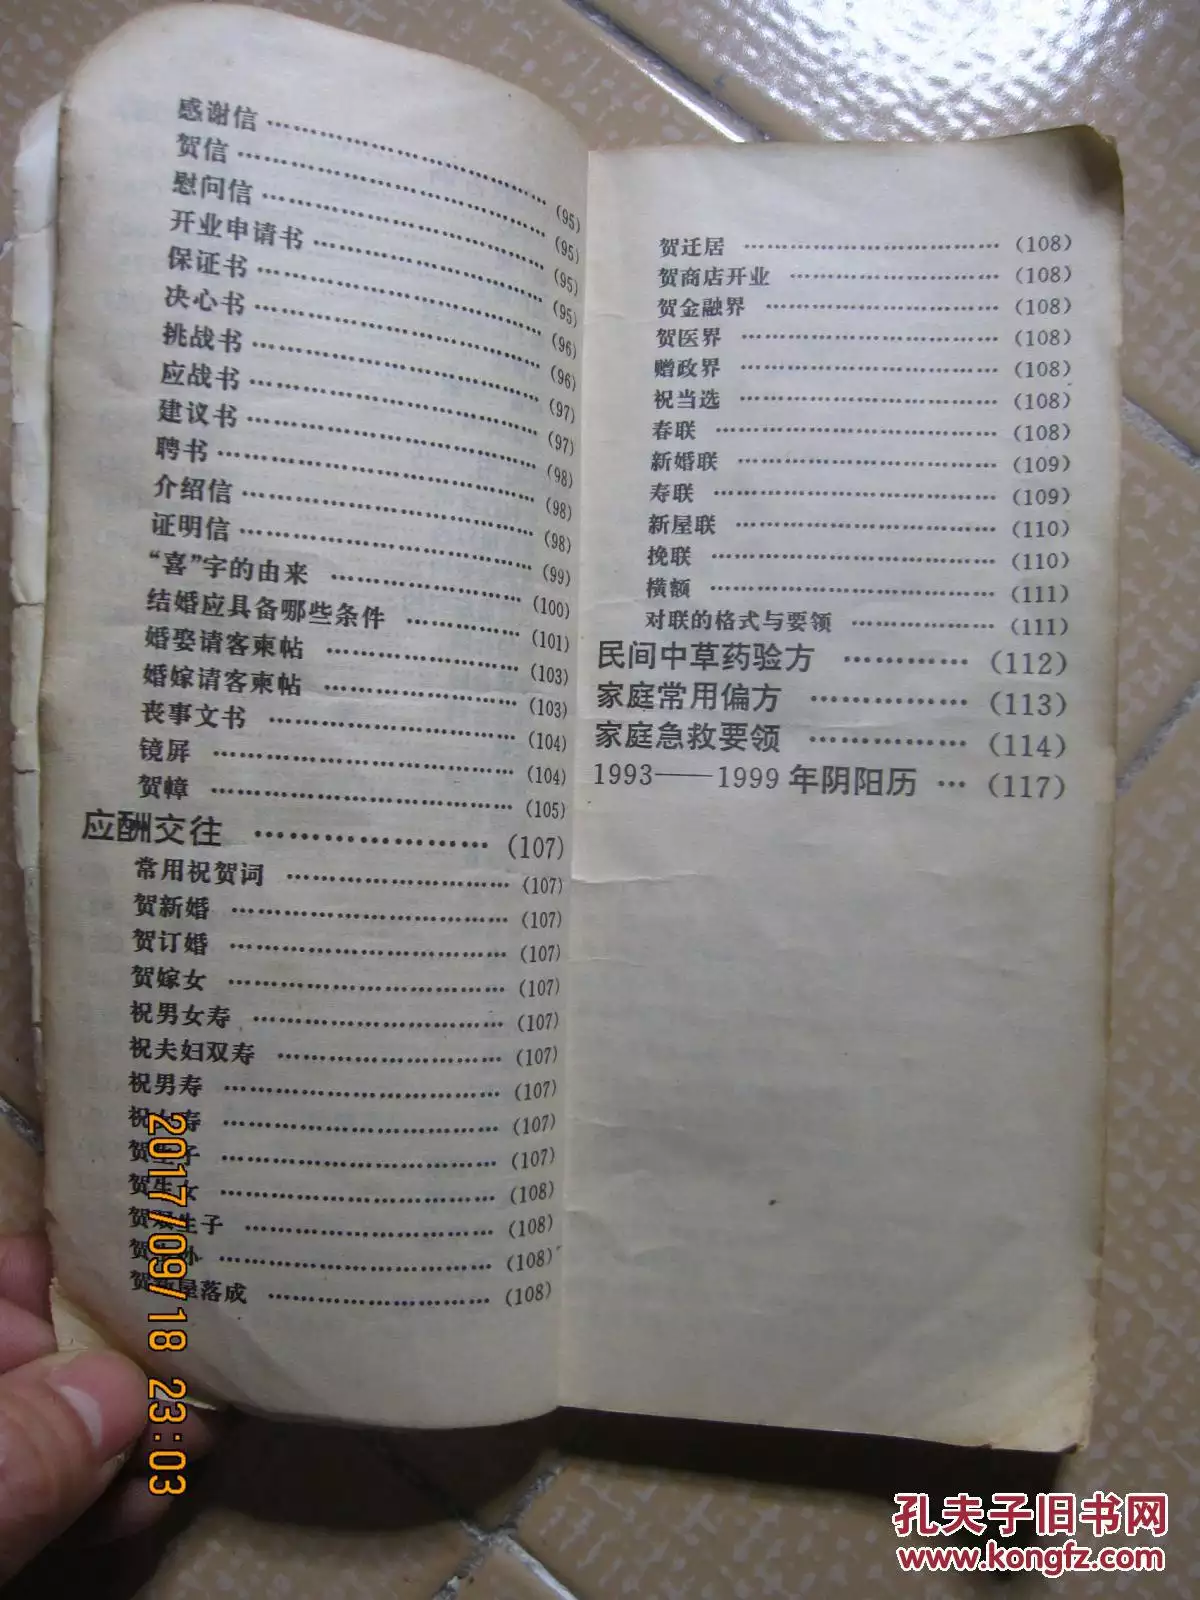 感谢信 …………………………… (95)
贺信 …………………………… (95)
慰问信 …………………………… (95)
开业申请书 …………………………… (95)
保证书 …………………………… (96)
决心书 …………………………… (96)
挑战书 …………………………… (97)
应战书 …………………………… (97)
建议书 …………………………… (98)
聘书 …………………………… (98)
介绍信 …………………………… (98)
证明信 …………………………… (99)
“喜”字的由来 …………………… (100)
结婚应具备哪些条件 …………… (101)
婚娶请客柬帖 …………………… (103)
婚嫁请客柬帖 …………………… (103)
丧事文书 …………………………… (104)
镜屏 …………………………… (104)
贺幛 …………………………… (105)
应酬交往 …………………… (107)
常用祝贺词 …………………… (107)
贺新婚 …………………………… (107)
贺订婚 …………………………… (107)
贺嫁女 …………………………… (107)
祝男女寿 …………………………… (107)
祝夫妇双寿 …………………… (107)
祝男寿 …………………………… (107)
祝女寿 …………………………… (107)
贺生子 …………………………… (107)
贺生女 …………………………… (108)
贺双生子 …………………………… (108)
贺 外 …………………………… (108)
贺新屋落成 …………………… (108)
贺迁居 …………………………… (108)
贺商店开业 …………………… (108)
贺金融界 …………………………… (108)
贺医界 …………………………… (108)
赠政界 …………………………… (108)
祝当选 …………………………… (108)
春联 …………………………… (108)
新婚联 …………………………… (109)
寿联 …………………………… (109)
新屋联 …………………………… (110)
挽联 …………………………… (110)
横额 …………………………… (111)
对联的格式与要领 …………… (111)
民间中草药验方 ………… (112)
家庭常用偏方 …………… (113)
家庭急救要领 …………… (114)
1993——1999年阴阳历 … (117)
2017/09/18 23:03
孔夫子旧书网
www.kongfz.com